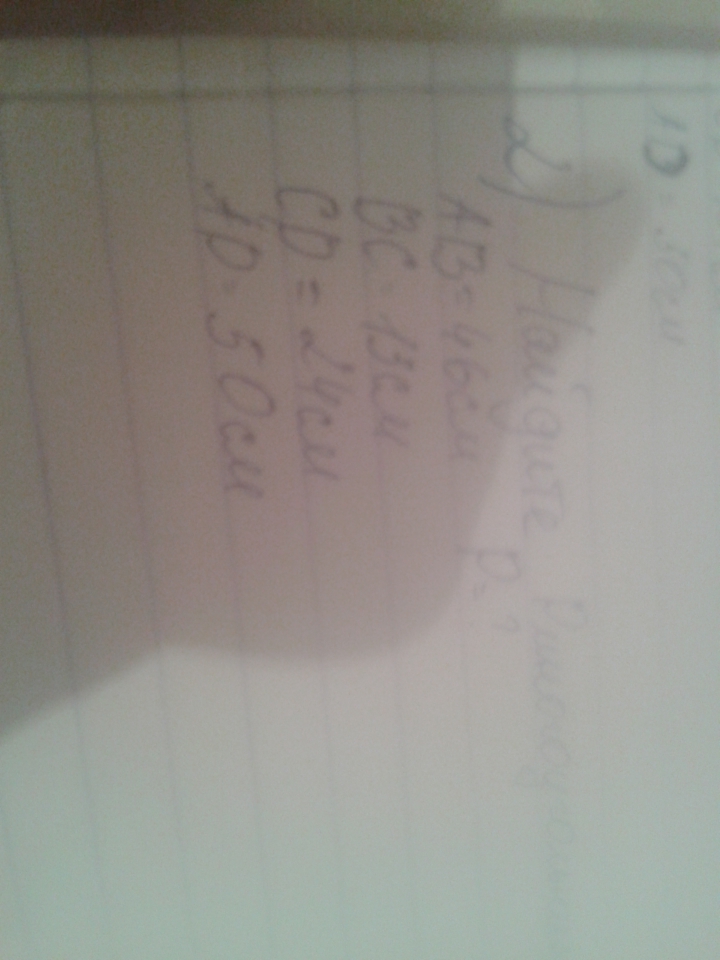 AD = 50см
2) Найдите
AB = 46см P = ?
BC = 13см
CD = 24см
AD = 50см